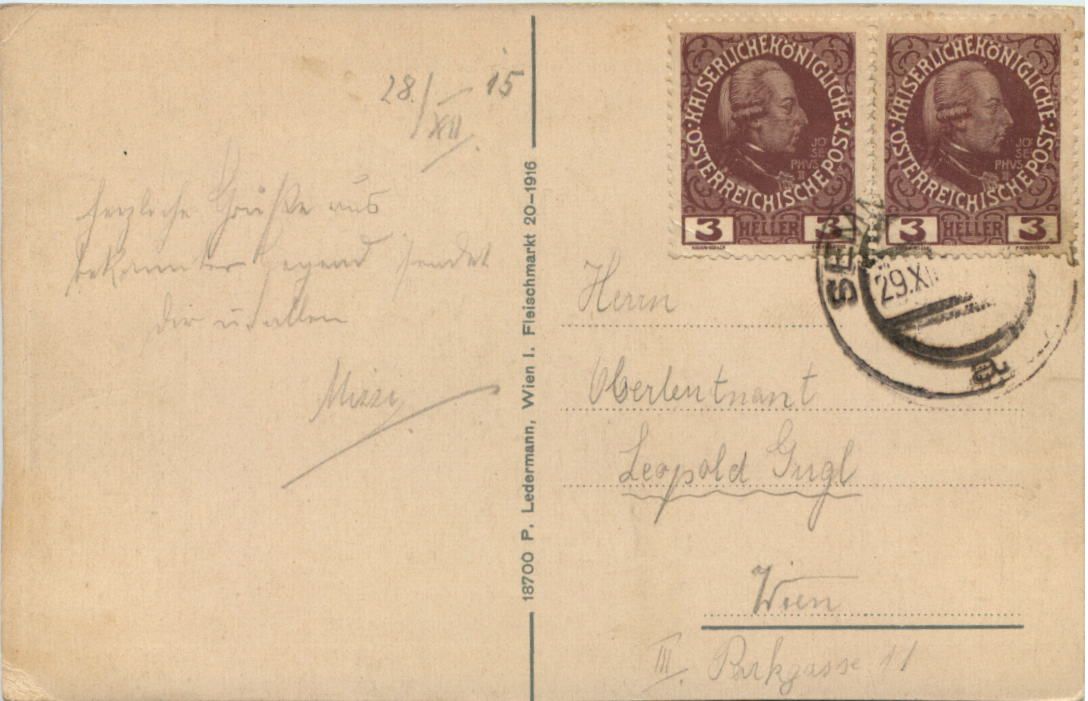 28./XII. 15
herzliche Grüße aus
bekannter Gegend sendet
Dir u. allen
Mizzi
18700 P. Ledermann, Wien I. Fleischmarkt 20-1916
KAISERLICHE KÖNIGLICHE
ÖSTERREICHISCHE POST
JO
SE
PHVS
II
3 HELLER 3
KAISERLICHE KÖNIGLICHE
ÖSTERREICHISCHE POST
JO
SE
PHVS
II
3 HELLER 3
29.XII
a
Herrn
Oberleutnant
Leopold Gugl
Wien
III. Parkgasse 11